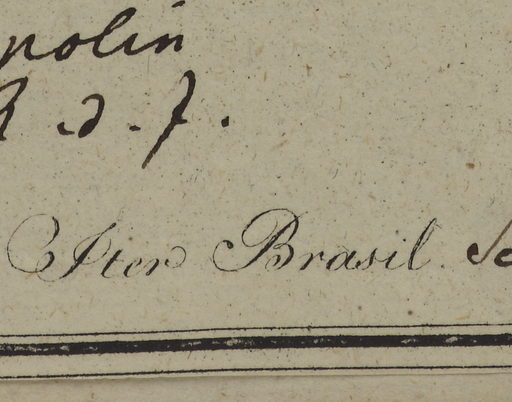 polin
d. f.
Iter Brasil.